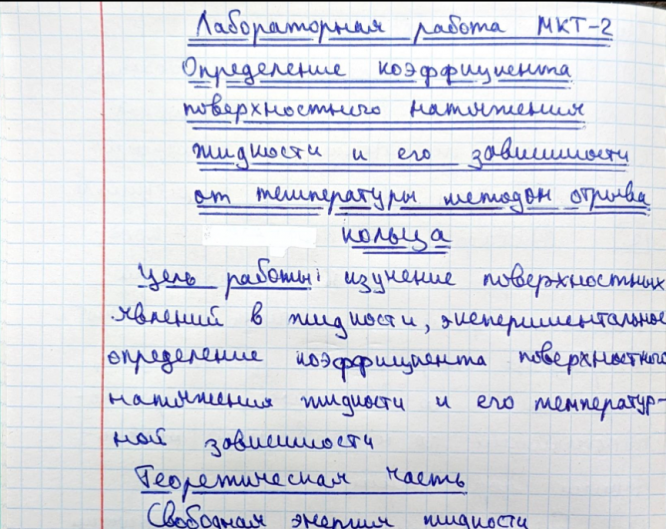 Лабораторная работа МКТ-2
Определение коэффициента
поверхностного натяжения
жидкости и его зависимости
от температуры методом отрыва
кольца
Цель работы: изучение поверхностных
явлений в жидкости, экспериментальное
определение коэффициента поверхностного
натяжения жидкости и его температур-
ной зависимости
Теоретическая часть
Свободная энергия жидкости